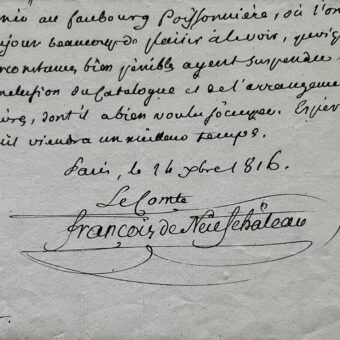 née au faubourg Poissonnière, où l'on
jour beaucoup de plaisir à le voir, quoiqu
rconstances bien pénibles ayent suspendu
nclusion du Catalogue et de l'arrangeme
dont il a bien voulu s'occuper. Espér
il viendra un meilleur temps.
Paris, le 14 xbre 1816.
Le Comte
françois de Neufchâteau